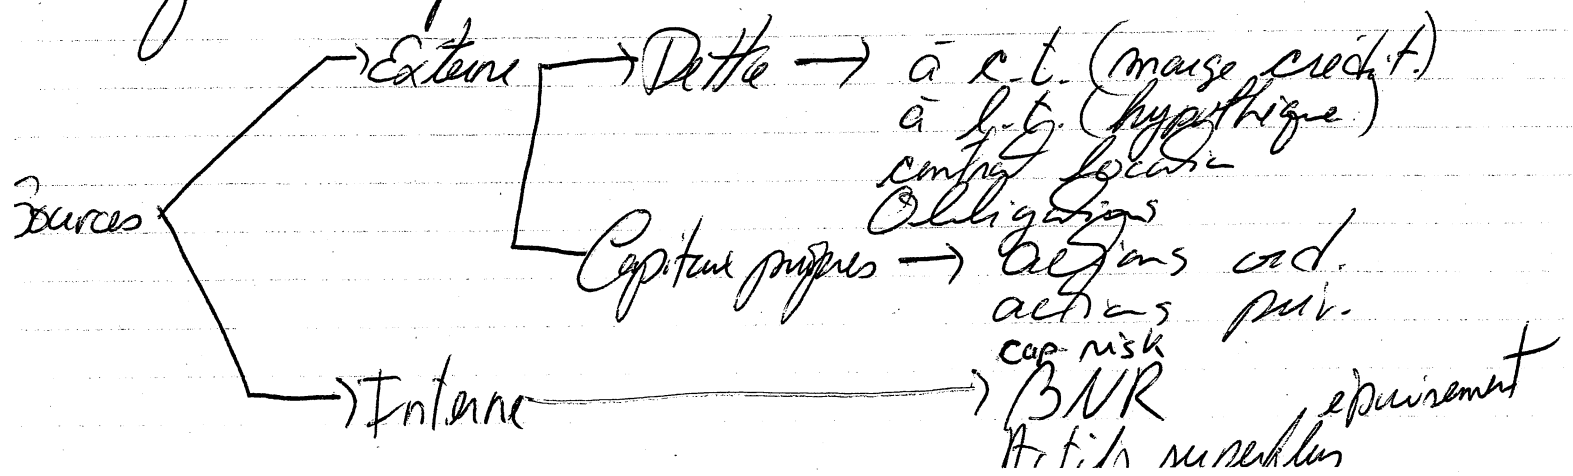 Sources
Externe
Dette
à c.t. (marge crédit.)
à l.t. (hypothèque)
contrat location
Obligations
Capitaux propres
actions ord.
actions priv.
cap risk
Interne
BNR
épuisement
Actifs superflus